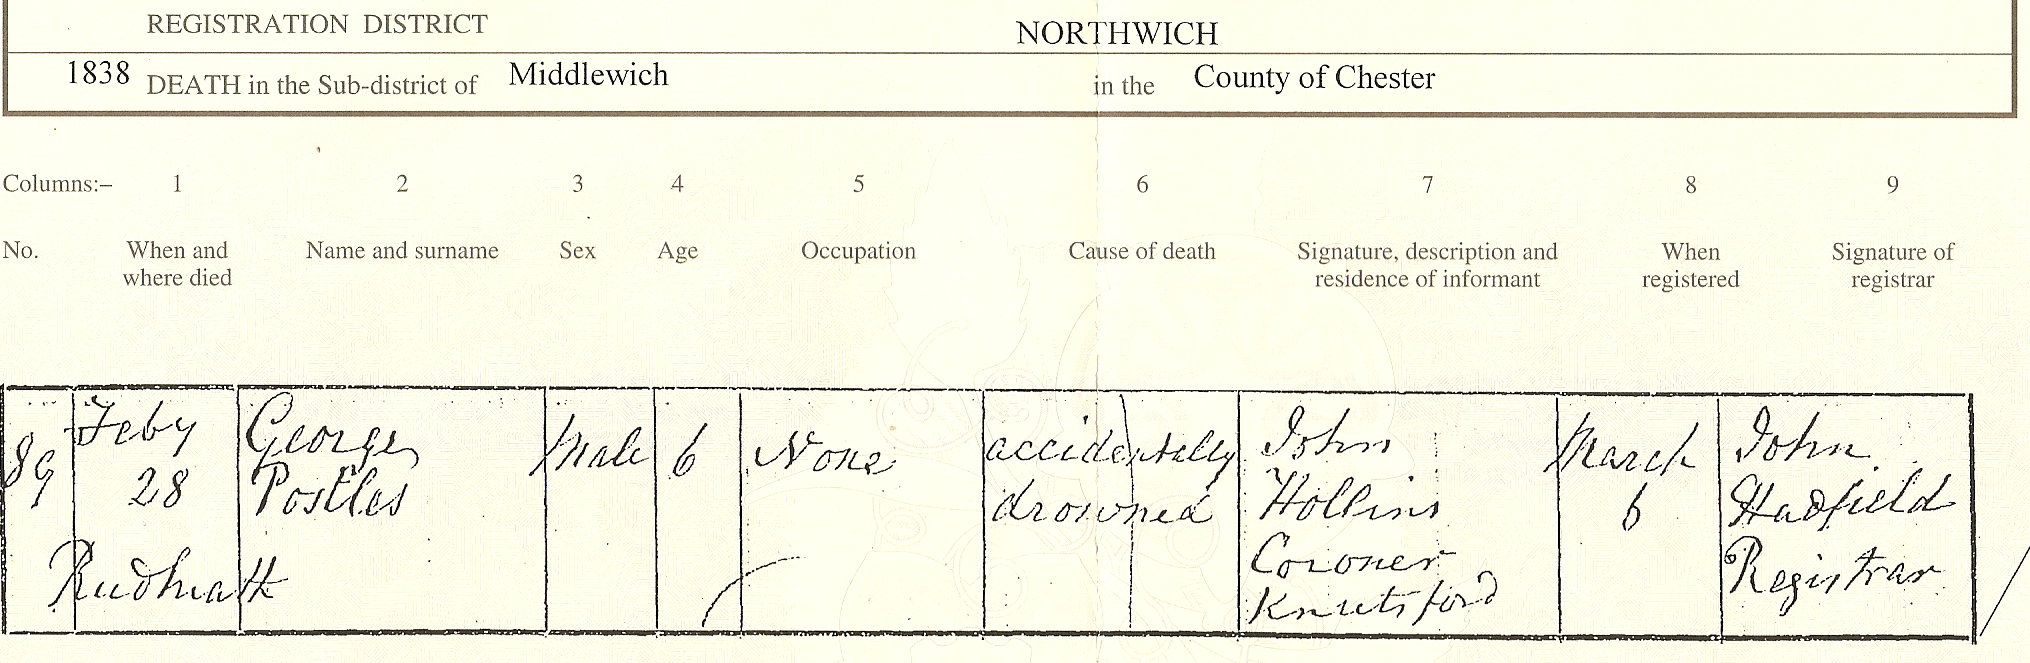 REGISTRATION DISTRICT NORTHWICH
1838 DEATH in the Sub-district of Middlewich in the County of Chester
Columns:– 1 2 3 4 5 6 7 8 9
No. When and where died Name and surname Sex Age Occupation Cause of death Signature, description and residence of informant When registered Signature of registrar
89 Feby 28 Rudheath George Postles Male 6 None accidentally drowned John Hollins Coroner Knutsford March 6 John Hadfield Registrar